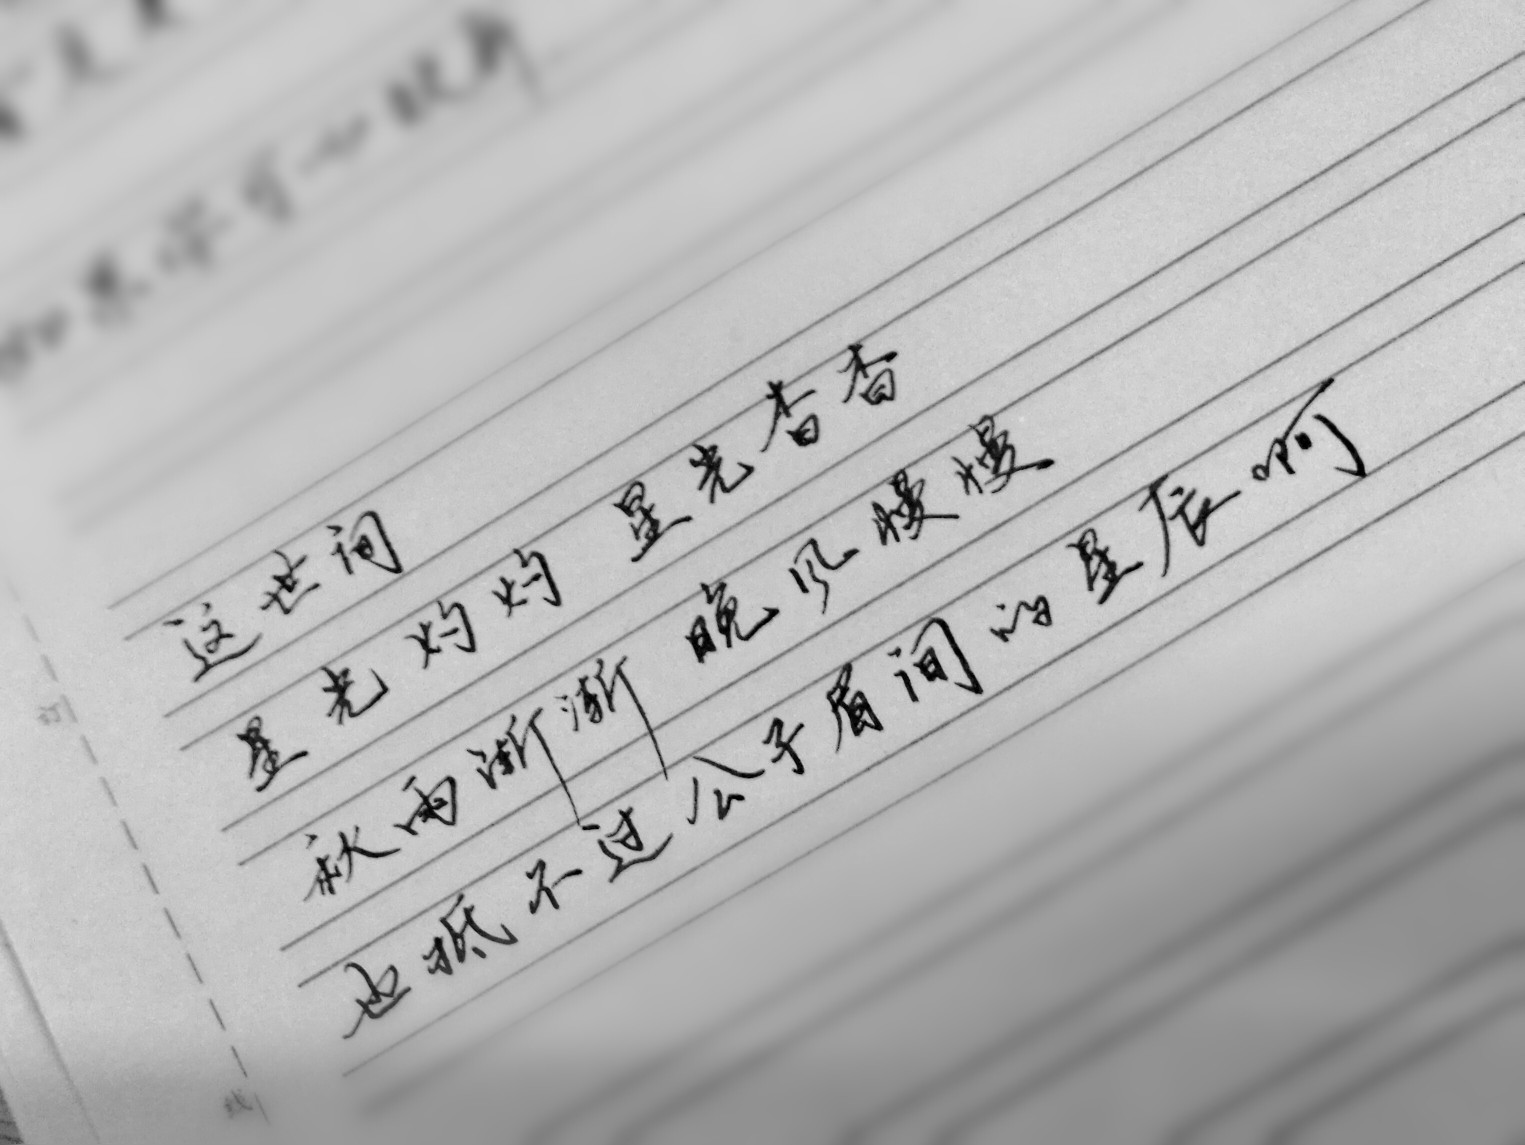 如果你
这世间
星光灼灼 星光杳杳
秋雨渐渐 晚风慢慢
也抵不过公子眉间的星辰啊